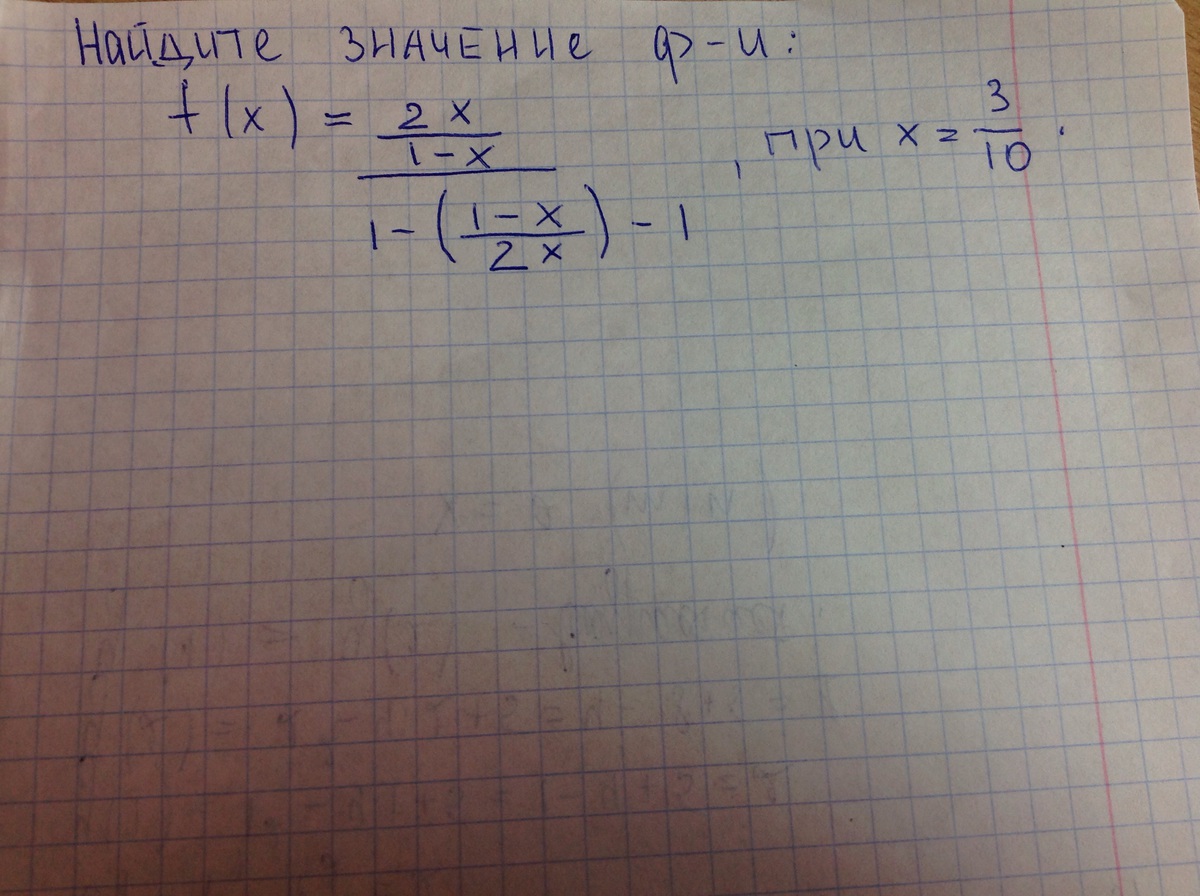 Найдите значение ф-и:
f(x) = \frac{\frac{2x}{1-x}}{1-\left(\frac{1-x}{2x}\right)-1}, при x = \frac{3}{10}.